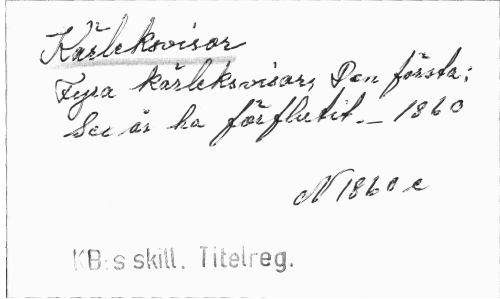 Kärleksvisor
Fyra kärleksvisor, Den första:
Sex år ha förflutit._ 1860
N 1860 c
KB:s skill. Titelreg.